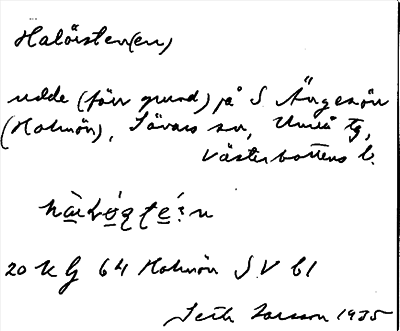 Halörsten(en)
udde (förr grund) på S Ängesön
(Holmön), Sävars sn, Umeå tg,
Västerbottens l.
20 K G 64 Holmön S.V b1
Seth Larsson 1935